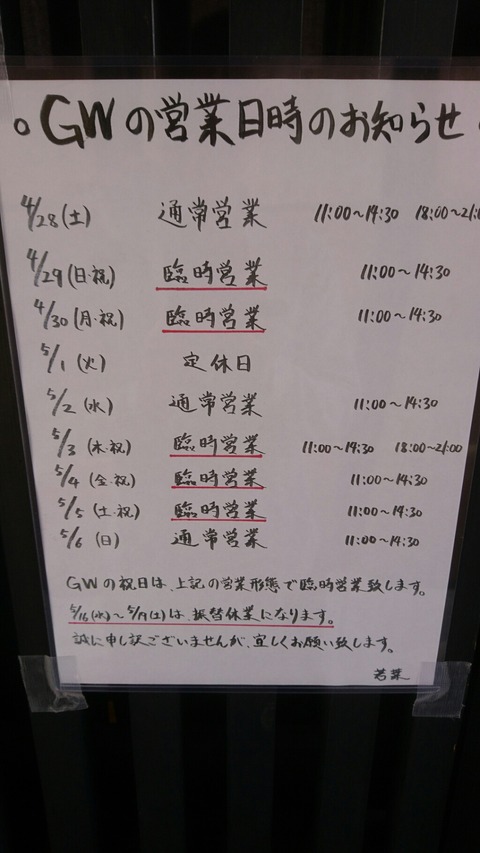 。GWの営業日時のお知らせ。
4/28(土) 通常営業 11:00～14:30 18:00～21:00
4/29(日・祝) 臨時営業 11:00～14:30
4/30(月・祝) 臨時営業 11:00～14:30
5/1(火) 定休日
5/2(水) 通常営業 11:00～14:30
5/3(木・祝) 臨時営業 11:00～14:30 18:00～21:00
5/4(金・祝) 臨時営業 11:00～14:30
5/5(土・祝) 臨時営業 11:00～14:30
5/6(日) 通常営業 11:00～14:30
GWの祝日は、上記の営業形態で臨時営業致します。
5/16(水)～5/19(土)は、振替休業になります。
誠に申し訳ございませんが、宜しくお願い致します。
若葉